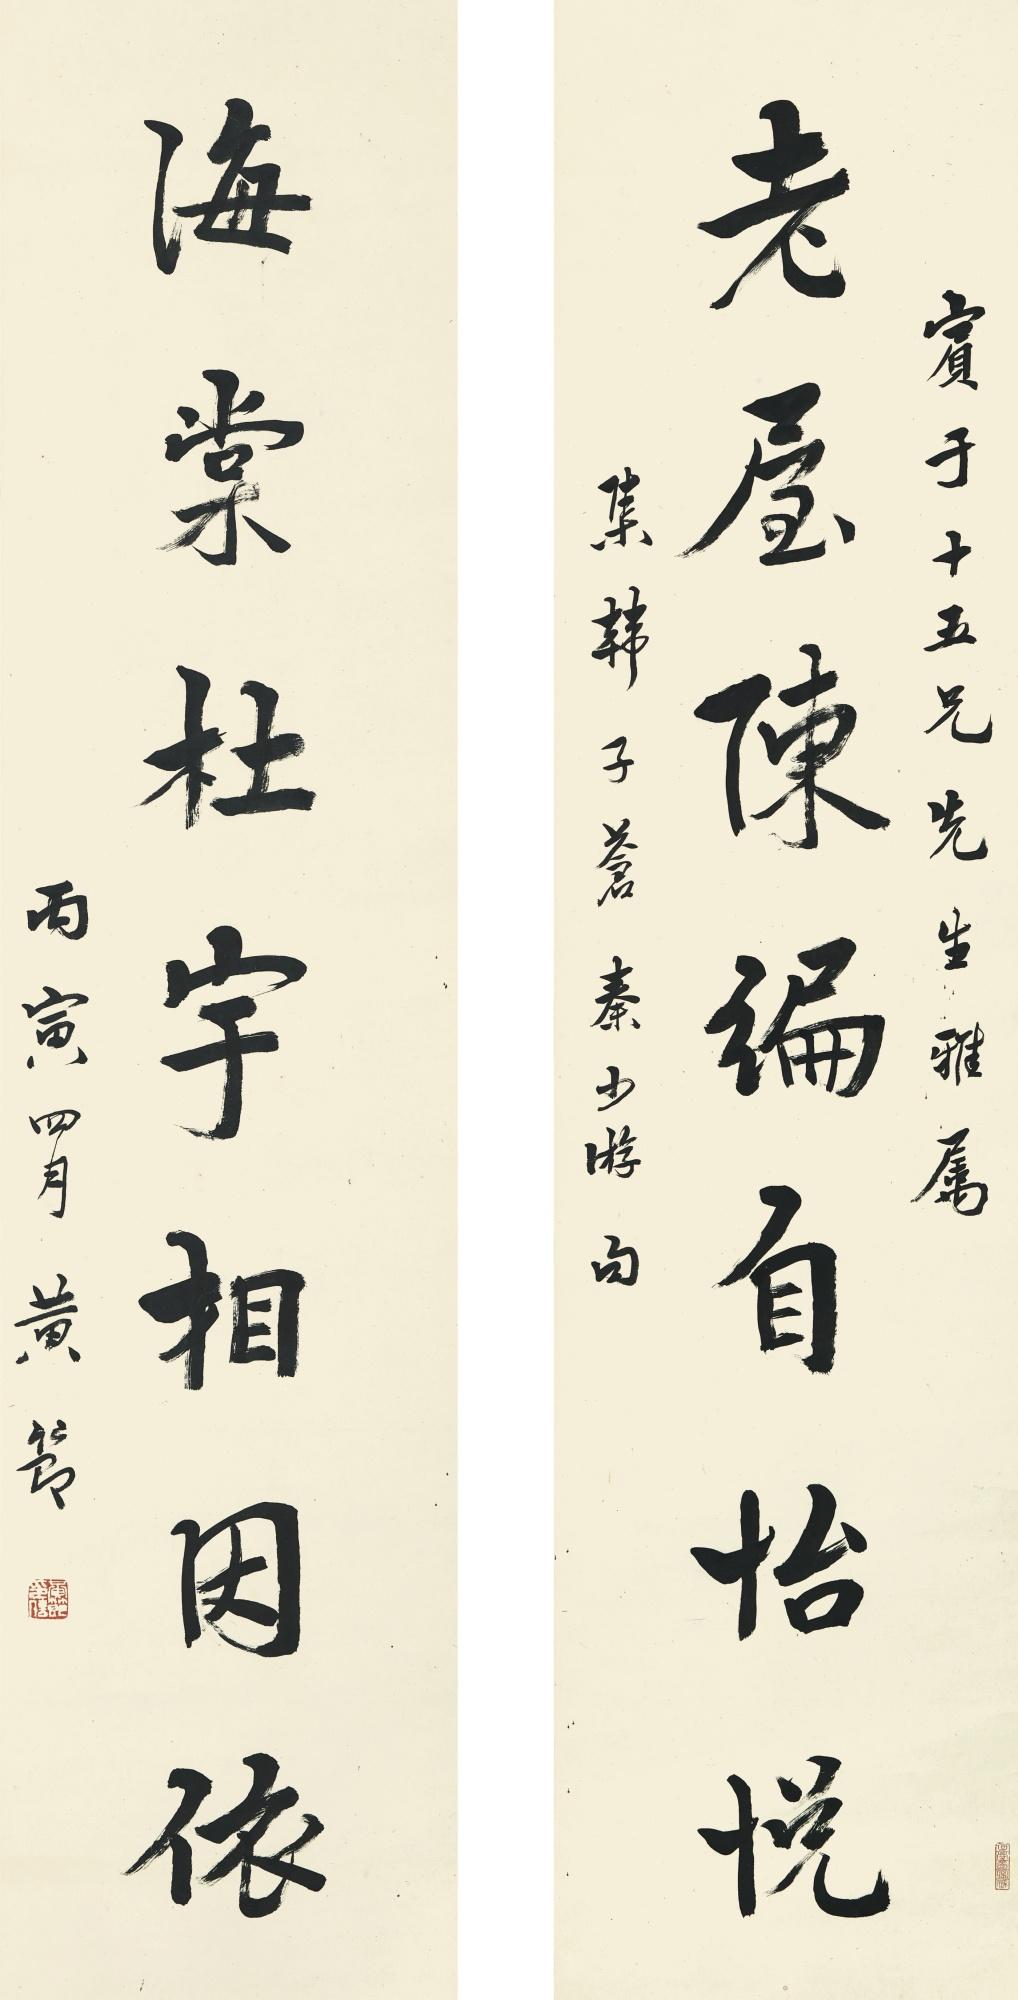 賓于十五兄先生雅属
老屋陳編自怡悦
集韩子蒼秦少游句
海棠杜宇相因依
丙寅四月黄節